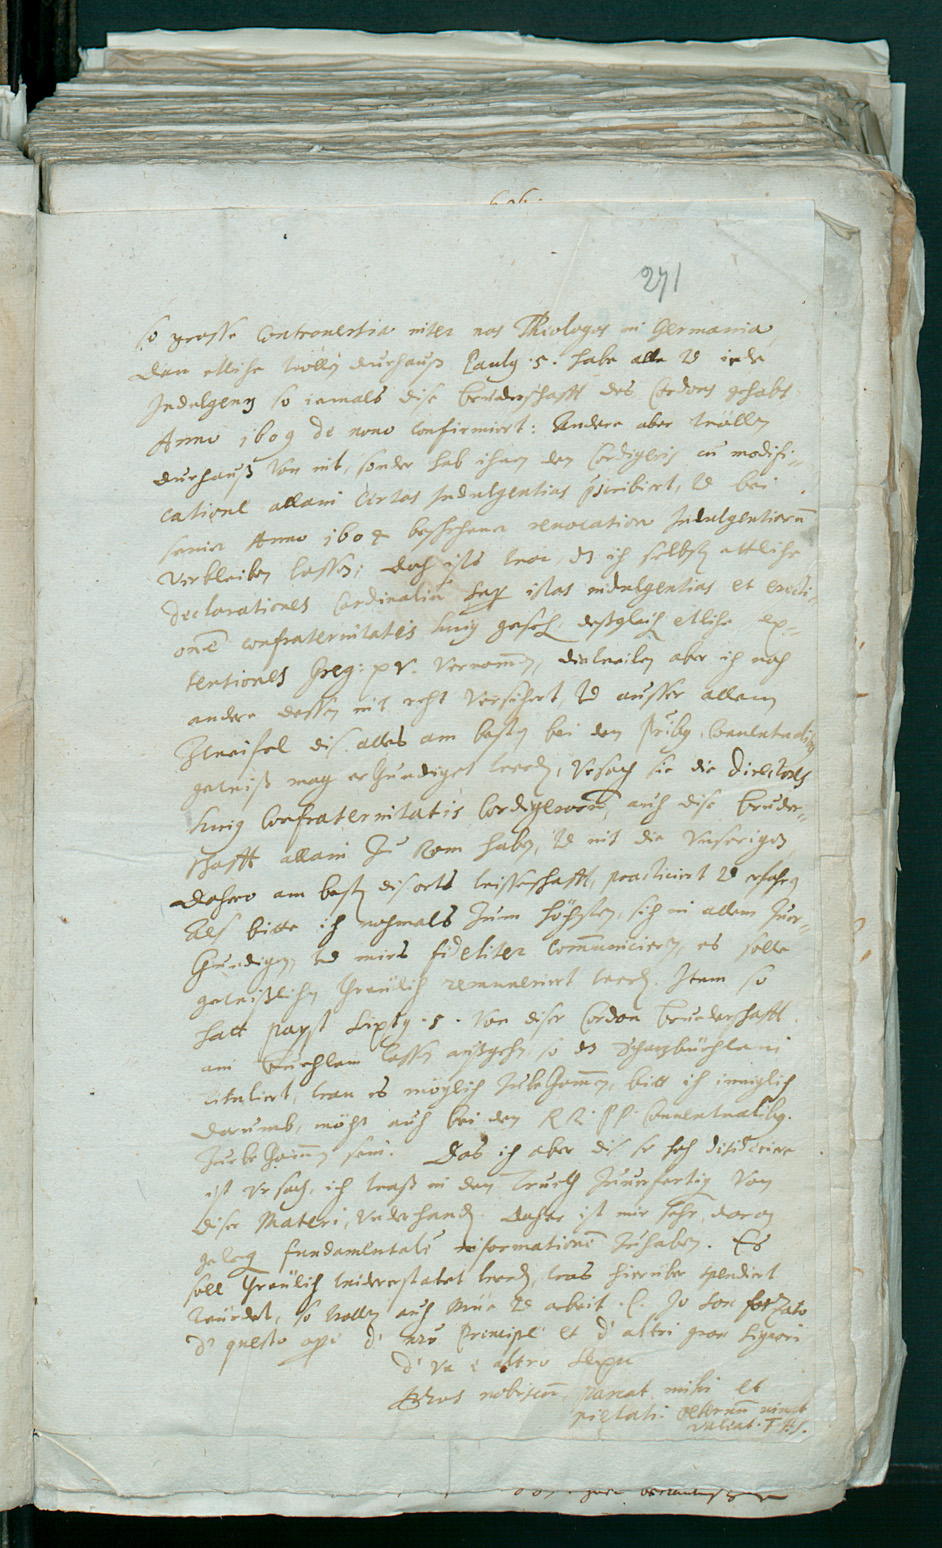 271
so grosse Controversia inter nos Theologos in Germania,
dan etliche wölln durchauß Pauly .5. habe alle vnd iede
Indulgenz so iemals dise bruderschafft des Cordons gehabt
Anno 1609 de nouo confirmiert: Andere aber wöllen
durchauß von nit, sonder hab ihnen den Cordigeris cu modifi-
catione allain Certas Indulgentias p̃scribirt, vnd bei
seiner Anno 1604 beschehener reuocation Indulgentiarũ
verbleiben lassen; doch ists war, dz ich selbst ettliche
declarationes Cardinaliũ sup istas indulgentias et erecti-
onẽ confraternitatis huiꝰ gesehẽ, desgleichẽ etliche ex-
tentiones Greg: XV. vernom̃en, dieweilen aber ich noch
andere dessen nit recht versichert, vnd ausser allem
Zweifel dis alles am besten bei den Conuentualibꝰ
gewiß mag erkundiget werdẽ, vrsach sie die directores
huiꝰ Confraternitatis Cordigerorũ, auch dise bruder-
schafft allain zu Rom haben, vnd nit die Vnserigen,
dahero am besten disorts wissenschafft, practiciert vnd erfahrẽ
Als bitte ich nochmals zum höchsten, sich in allem zuer-
kundigen, vnd mirs fideliter Com̃uniciern, es solle
gewißlichen threulich remuneriert werdẽ. Item so
hatt Papst Sixtꝰ .5. von diser Cordon bruderschafft
ain buechlein lassen außgehn so dz Schazbüchlein
intituliert, wan es möglich zubekom̃en, bitt ich inniglich
darumb, möcht auch bei den RR. PP. Conuentualibꝰ.
zuebekom̃en sein. Das ich aber dis so hoch
ist vrsach, ich waß in den Truckh zuuerfertigen von
diser Materi, vnderhandẽ. daher ist mir sehr daran
gelegẽ fundamentalẽ informationẽ zuhaben. Es
soll threulich widererstatet werdẽ, was hierüber spendiert
würdet, so wollen auch müe vnd arbeit. Io son forzato
d' questo d' nrõ Principe et d' altri gran Signori
nobiscũ, mihi et
pietati
valeat.